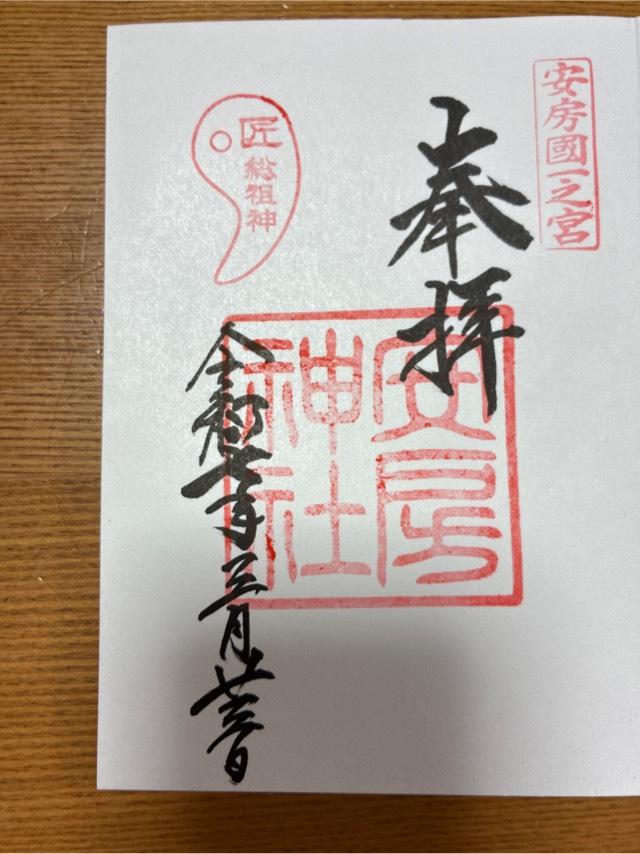 安房國一之宮
奉拝
安房
神社
匠
総祖神
令和七年
三月